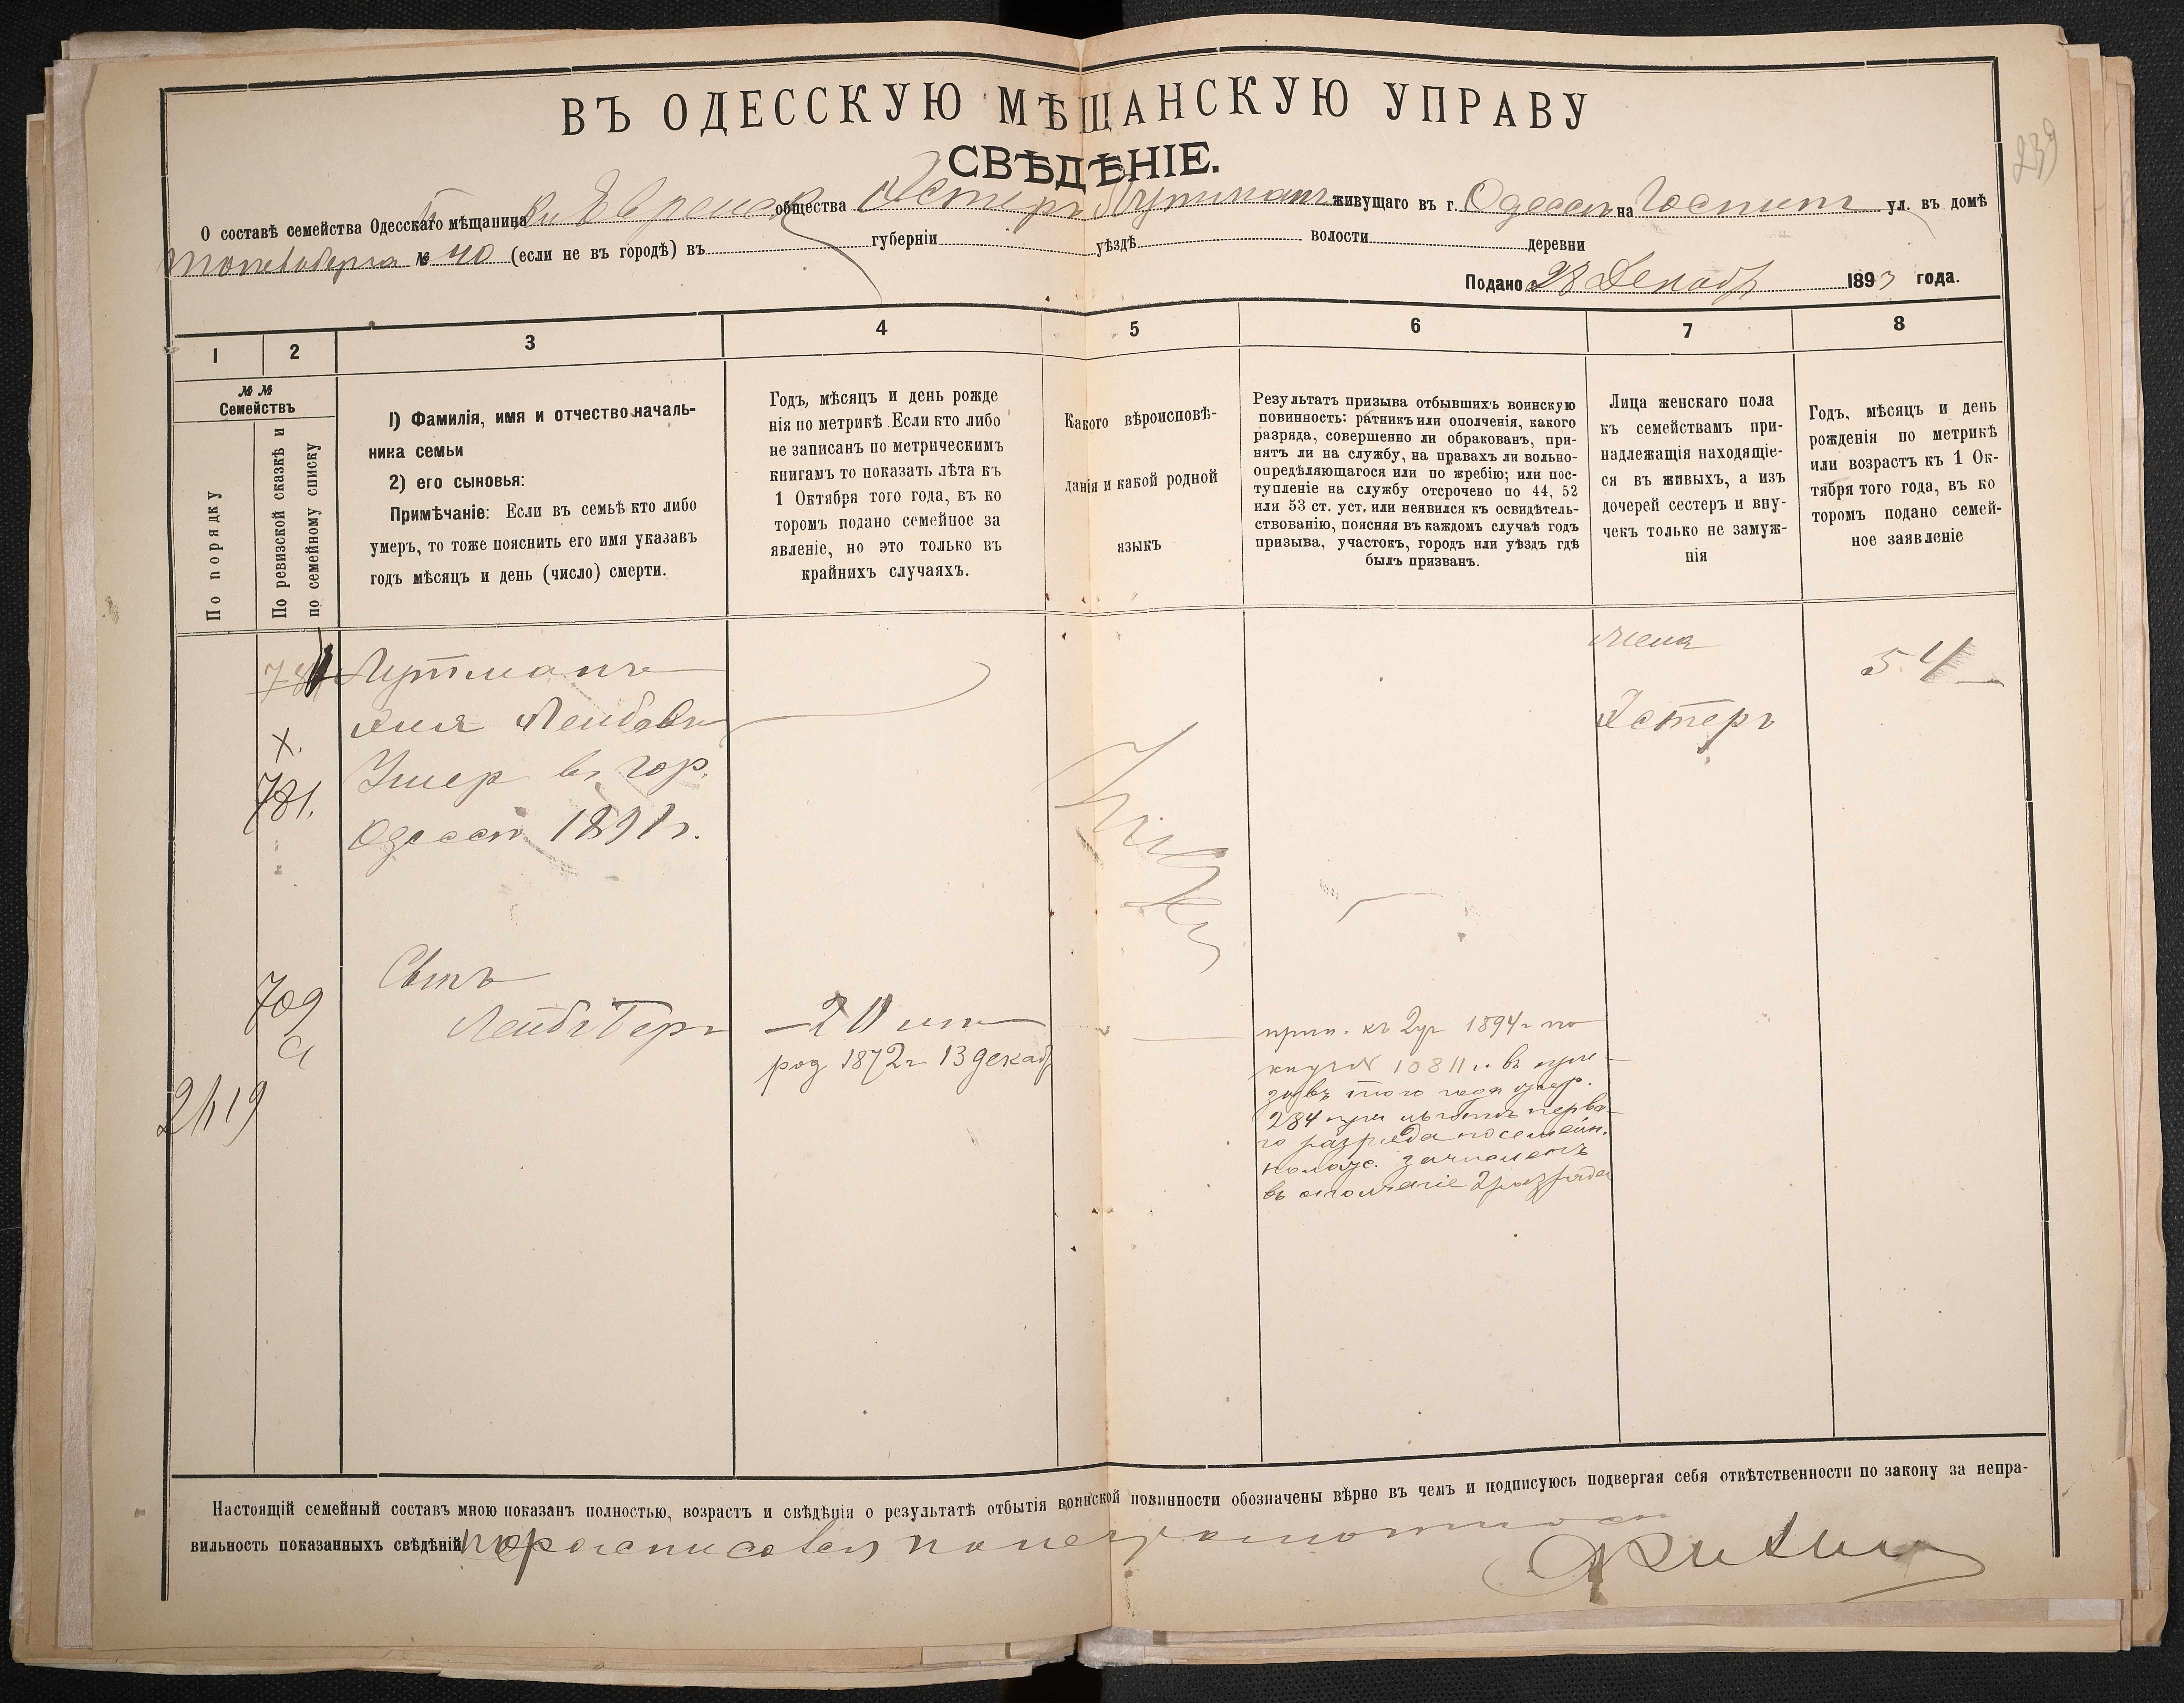 ВЪ ОДЕССКУЮ МѢЩАНСКУЮ УПРАВУ
СВѢДѢНІЕ.
239
О составѣ семейства Одесскаго мѣщанина ки Еврейск общества Эстеръ Лутманъ живущаго въ г. Одессѣ на Госпит ул. въ домѣ
№ 40 (если не въ городѣ) въ губерніи уѣздѣ волости деревни
Подано 28 Декабр 1893 года.
1 2 3 4 5 6 7 8
№ №
Семействъ
По порядку
По ревизской сказкѣ и
по семейному списку
1) Фамилія, имя и отчество началь-
ника семьи
2) его сыновья:
Примѣчаніе: Если въ семьѣ кто либо
умеръ, то тоже пояснить его имя указавъ
годъ мѣсяцъ и день (число) смерти.
Годъ, мѣсяцъ и день рожде
нія по метрикѣ. Если кто либо
не записанъ по метрическимъ
книгамъ то показать лѣта къ
1 Октября того года, въ ко
торомъ подано семейное за
явленіе, но это только въ
крайнихъ случаяхъ.
Какого вѣроисповѣ-
данія и какой родной
языкъ
Результатъ призыва отбывшихъ воинскую
повинность: ратникъ или ополченія, какого
разряда, совершенно ли обракованъ, при-
нятъ ли на службу, на правахъ ли вольно-
опредѣляющагося или по жребію; или пос-
тупленіе на службу отсрочено по 44, 52
или 53 ст. уст. или неявился къ освидѣтель-
ствованію, поясняя въ каждомъ случаѣ годъ
призыва, участокъ, городъ или уѣздъ гдѣ
былъ призванъ.
Лица женскаго пола
къ семействамъ при-
надлежащія находящіе-
ся въ живыхъ, а изъ
дочерей сестеръ и вну-
чекъ только не замуж-
нія
Годъ, мѣсяцъ и день
рожденія по метрикѣ
или возрастъ къ 1 Ок-
тября того года, въ ко
торомъ подано семей-
ное заявленіе
Лутманъ
Лейбовъ
Умер въ гор.
Одессѣ 1891 г.
х.
781.
жена
Эстеръ
54
709
а
2419
Сынъ
Лейбъ Геръ
род 1872 г 13 декаб
прип. къ 2 уч 1894 г по
10811 и въ при-
зывъ того года жер.
284 при льготѣ перва-
го разряда по семейн.
полож. зачисленъ
въ ополченіе 2 разряда
Настоящій семейный составъ мною показанъ полностью, возрастъ и свѣдѣнія о результатѣ отбытія воинской повинности обозначены вѣрно въ чемъ и подписуюсь подвергая себя отвѣтственности по закону за непра-
вильность показанныхъ свѣдѣній